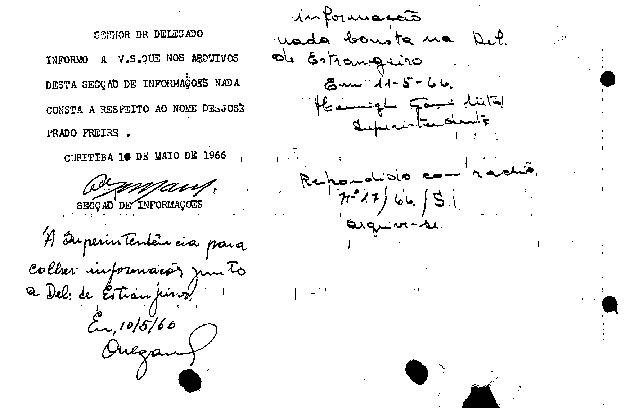 SENHOR DR DELEGADO
INFORMO A V.S.QUE NOS ARQUIVOS
DESTA SECÇÃO DE INFORMAÇÕES NADA
CONSTA A RESPEITO AO NOME DE JOSÉ
PRADO FREIRE .
CURITIBA 10 DE MAIO DE 1966
SECÇÃO DE INFORMAÇÕES
À Superintendência para
colher informações junto
a Del. de Estrangeiros
Em, 10/5/66
informação
nada consta na Del.
de Estrangeiro
Em 11-5-66.
Superintendente
Respondido com rádio
nº 17/66/S
arquive-se.